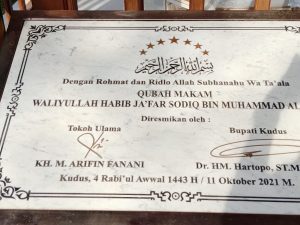 بسم الله الرحمن الرحيم
Dengan Rohmat dan Ridlo Allah Subhanahu Wa Ta'ala
QUBAH MAKAM
WALIYULLAH HABIB JA'FAR SODIQ BIN MUHAMMAD AL
Diresmikan oleh :
Tokoh Ulama
Bupati Kudus
KH. M. ARIFIN FANANI
Dr. HM. Hartopo, ST.M
Kudus, 4 Rabi'ul Awwal 1443 H / 11 Oktober 2021 M.